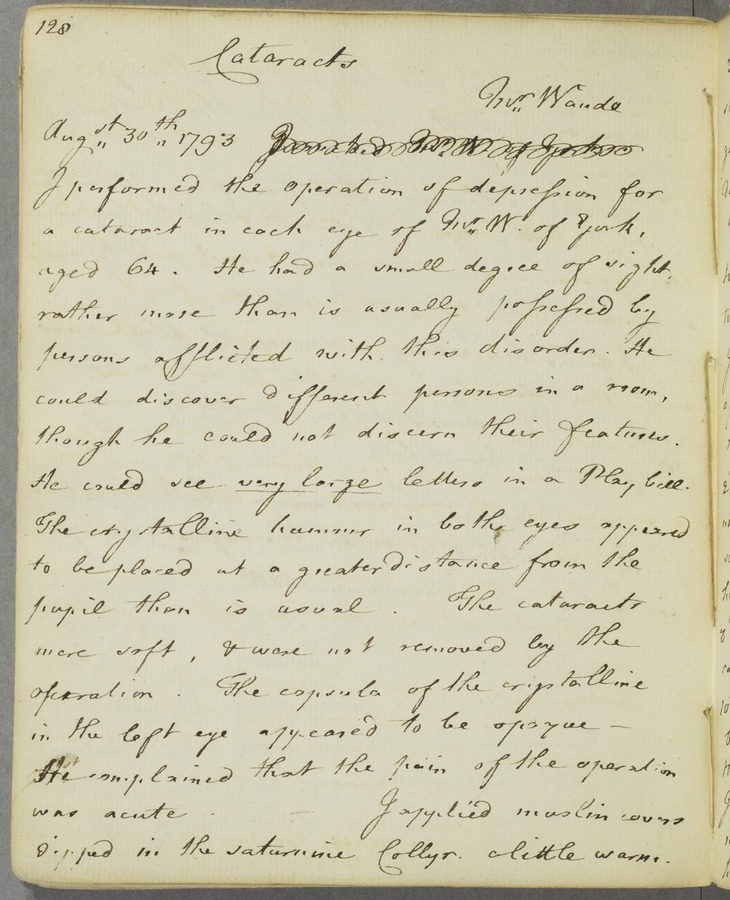 128
Cataracts
Mr. Waude
Augst 30th 1793
I performed the operation of depression for
a cataract in each eye of Mr. W. of York,
aged 64. He had a small degree of sight,
rather more than is usually possessed by
persons afflicted with this disorder. He
could discover different persons in a room,
though he could not discern their features.
He could see very large letters in a Play bill.
The crystalline humour in both eyes appeared
to be placed at a greater distance from the
pupil than is usual. The cataracts
were soft, & were not removed by the
operation. The capsula of the crystalline
in the left eye appeared to be opaque —
He complained that the pain of the operation
was acute. — I applied muslin covers
dipped in the saturnine Collyr. a little warm.